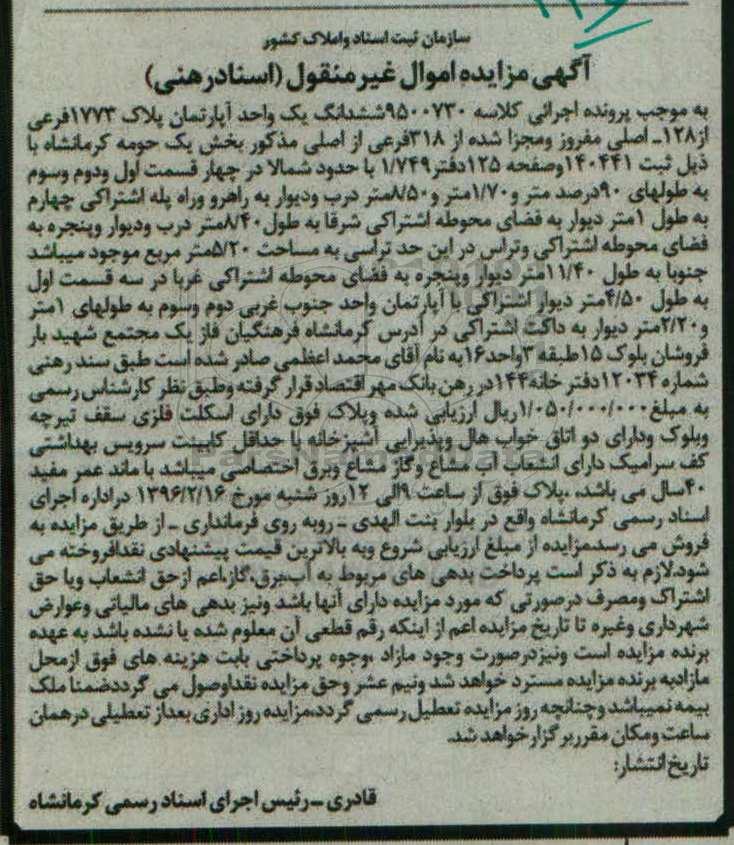 سازمان ثبت اسناد واملاک کشور
آگهی مزایده اموال غیرمنقول (اسنادرهنی)
به موجب پرونده اجرائی کلاسه ۹۵۰۰۷۳۰ششدانگ یک واحد آپارتمان پلاک ۱۷۷۳فرعی
از۱۲۸ـ اصلی مفروز ومجزا شده از ۳۱۸فرعی از اصلی مذکور بخش یک حومه کرمانشاه با
ذیل ثبت ۱۴۰۴۴۱وصفحه ۱۲۵دفتر۱/۷۴۹ با حدود شمالا در چهار قسمت اول ودوم وسوم
به طولهای ۹۰درصد متر و۱/۷۰متر و۸/۵۰متر درب ودیوار به راهرو وراه پله اشتراکی چهارم
به طول ۱متر دیوار به فضای محوطه اشتراکی شرقا به طول۸/۴۰متر درب ودیوار وپنجره به
فضای محوطه اشتراکی وتراس در این حد تراسی به مساحت ۵/۲۰متر مربع موجود میباشد
جنوبا به طول ۱۱/۴۰متر دیوار وپنجره به فضای محوطه اشتراکی غربا در سه قسمت اول
به طول ۴/۵۰متر دیوار اشتراکی با آپارتمان واحد جنوب غربی دوم وسوم به طولهای ۱متر
و۲/۲۰متر دیوار به داکت اشتراکی در آدرس کرمانشاه فرهنگیان فاز یک مجتمع شهید بار
فروشان بلوک ۱۵طبقه ۳واحد۱۶به نام آقای محمد اعظمی صادر شده است طبق سند رهنی
شماره ۱۲۰۳۴دفتر خانه۱۴۴در رهن بانک مهر اقتصاد قرار گرفته وطبق نظر کارشناس رسمی
به مبلغ۱/۰۵۰/۰۰۰/۰۰۰ریال ارزیابی شده وپلاک فوق دارای اسکلت فلزی سقف تیرچه
وبلوک ودارای دو اتاق خواب هال وپذیرایی آشپزخانه با حداقل کابینت سرویس بهداشتی
کف سرامیک دارای انشعاب آب مشاع وگاز مشاع وبرق اختصاصی میباشد با ماند عمر مفید
۴۰سال می باشد .پلاک فوق از ساعت ۹الی ۱۲روز شنبه مورخ ۱۳۹۶/۲/۱۶ دراداره اجرای
اسناد رسمی کرمانشاه واقع در بلوار بنت الهدی ـ روبه روی فرمانداری ـ از طریق مزایده به
فروش می رسد.مزایده از مبلغ ارزیابی شروع وبه بالاترین قیمت پیشنهادی نقدافروخته می
شود.لازم به ذکر است پرداخت بدهی های مربوط به آب،برق،گاز،اعم ازحق انشعاب ویا حق
اشتراک ومصرف درصورتی که مورد مزایده دارای آنها باشد ونیز بدهی های مالیاتی وعوارض
شهرداری وغیره تا تاریخ مزایده اعم از اینکه رقم قطعی آن معلوم شده یا نشده باشد به عهده
برنده مزایده است ونیزدرصورت وجود مازاد ،وجوه پرداختی بابت هزینه های فوق ازمحل
مازادبه برنده مزایده مسترد خواهد شد ونیم عشر وحق مزایده نقداوصول می گرددضمنا ملک
بیمه نمیباشد وچنانچه روز مزایده تعطیل رسمی گردد،مزایده روز اداری بعداز تعطیلی درهمان
ساعت ومکان مقرربرگزارخواهد شد.
تاریخ انتشار:
قادری ـ رئیس اجرای اسناد رسمی کرمانشاه